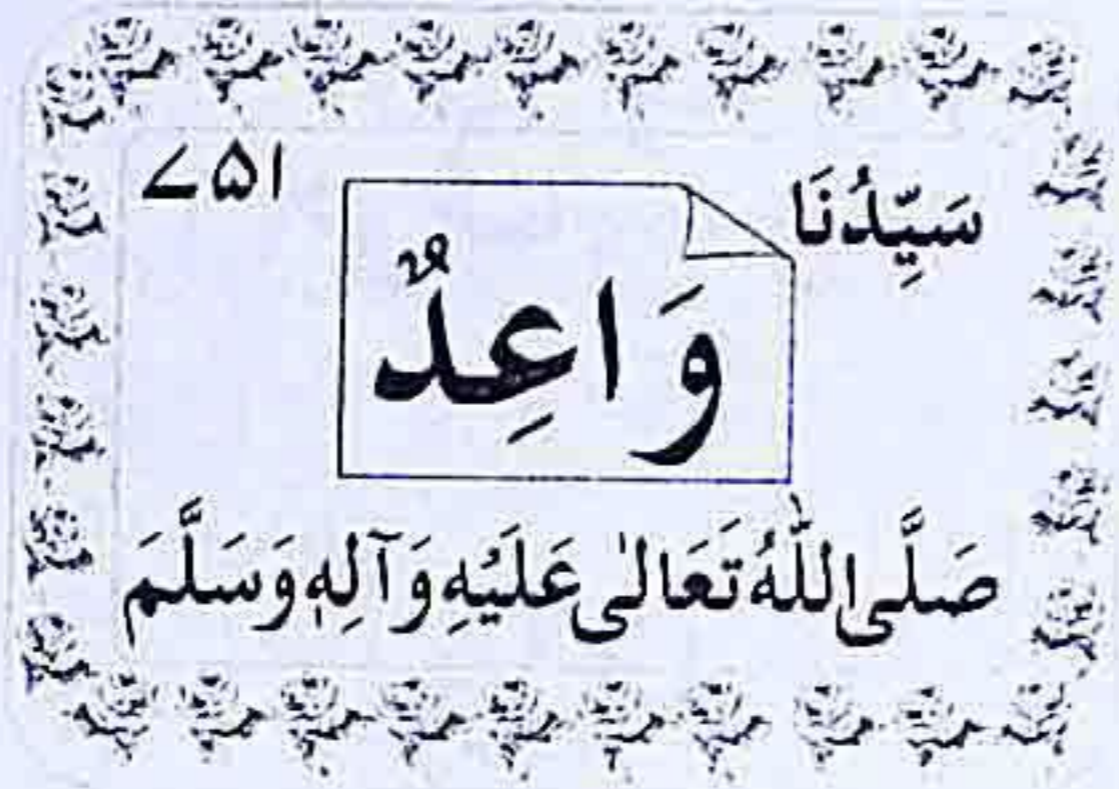 سَيِّدُنَا ۷۵۱
وَاعِدٌ
صَلَّى اللّٰهُ تَعَالٰى عَلَيْهِ وَآلِهٖ وَسَلَّمَ